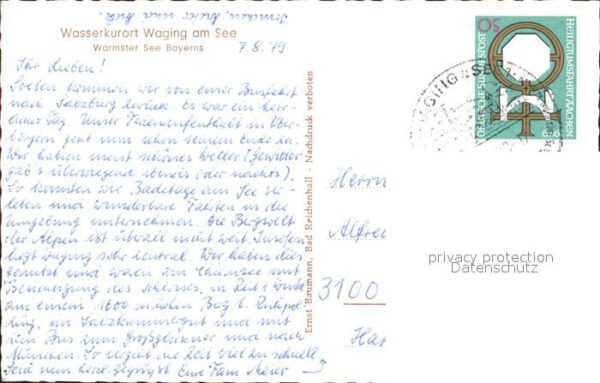 Wasserkurort Waging am See
Wärmster See Bayerns
7.8.79
Ihr Lieben!
Soeben kommen wir von einer Busfahrt
nach Salzburg zurück. Es war ein herr-
licher Tag. Unser Ferienaufenthalt in Ober-
bayern geht nun schon seinem Ende zu.
Wir haben meist schönes Wetter (Gewitter
gab's überwiegend abends oder nachts).
So konnten wir Badetage am See er-
leben und wunderbare Fahrten in die
Umgebung unternehmen. Die Bergwelt
der Alpen ist überall nicht weit. Insofern
liegt Waging sehr zentral. Wir haben dies
genutzt und waren am Chiemsee mit
Besichtigung des Schlosses, in Reit i. Winkl
auf einem 1600 m hohen Berg b. Ruhpol-
ding, im Salzkammergut und mit
dem Bus zum Großglockner und nach
München. So vergeht die Zeit viel zu schnell
Seid nun herzl. gegrüßt Eure Fam. Meier
Ernst Baumann, Bad Reichenhall - Nachdruck verboten
DEUTSCHE BUNDESPOST
50
HEILIGTUMSFAHRT AACHEN
WAGING a. SEE
Herrn
Alfred
3100
privacy protection
Datenschutz